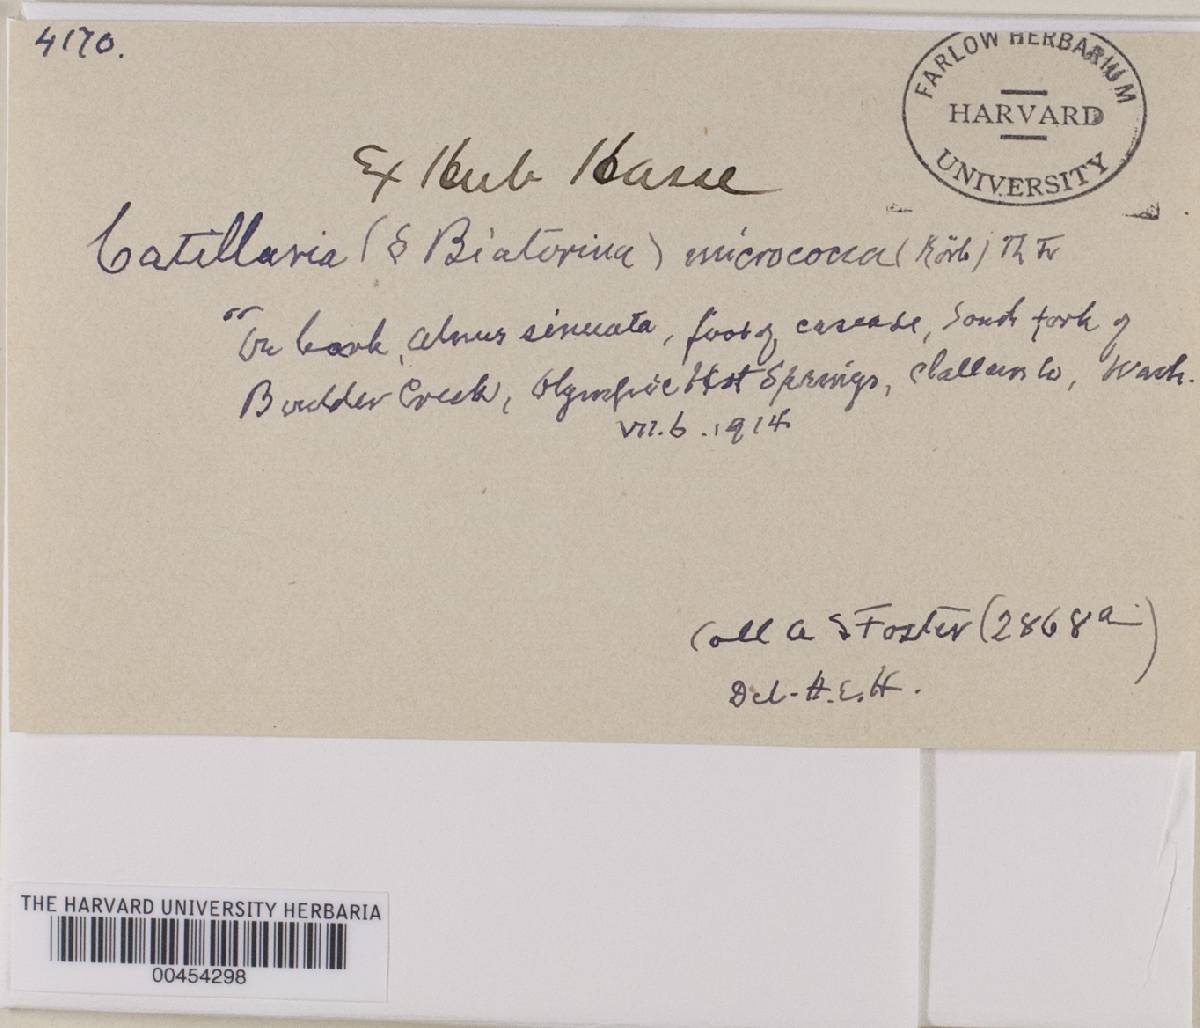 4170.
FARLOW HERBARIUM
HARVARD
UNIVERSITY
Ex Herb Hasse
Catillaria (§ Biatorina) micrococca (Körb) Th Fr
On bark, Alnus sinuata, foot of cascade, South fork of
Boulder Creek, Olympic Hot Springs, Clallam Co, Wash.
VII. 6. 1914
Coll A S Foster (2868a)
Det. H. E. H.
THE HARVARD UNIVERSITY HERBARIA
00454298